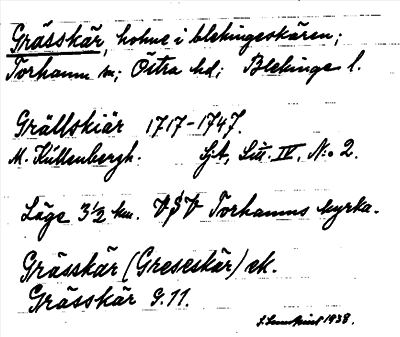 Grässkär, holme i blekingeskären;
Torhamn sn; Östra hd; Blekinge l.
Grällskiär 1717-1747.
M. Kullenbergh. Sjk, Litt. IV, No. 2.
Läge 3½ km. VSV Torhamns kyrka.
Grässkär (Greseskär) ek.
Grässkär G.11.
1938.